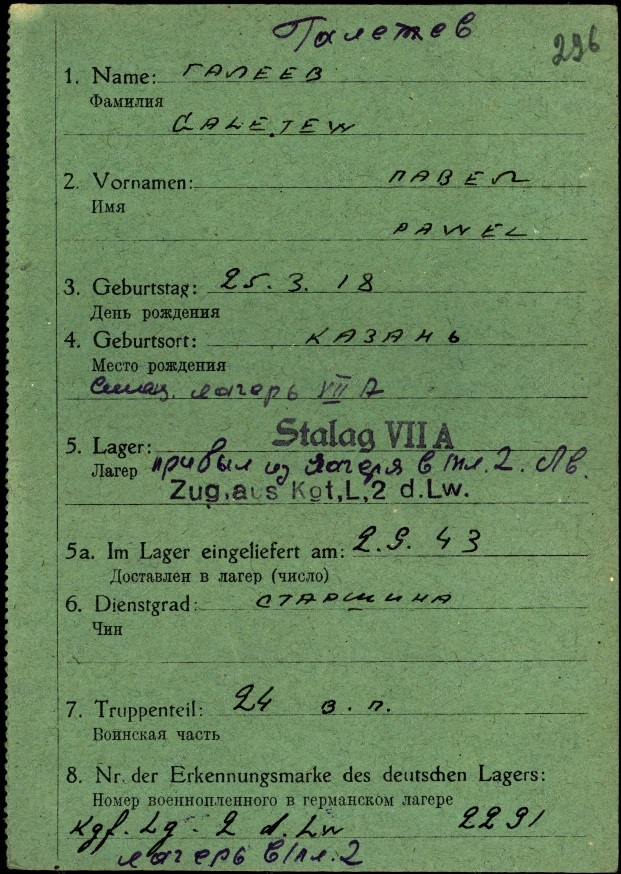 Галетев
296
1. Name: ГАЛЕЕВ
Фамилия
GALETEW
2. Vornamen: ПАВЕЛ
Имя
PAWEL
3. Geburtstag: 25. 3. 18
День рождения
4. Geburtsort: КАЗАНЬ
Место рождения
лагерь VII A
Stalag VII A
5. Lager:
Лагерь прибыл из лагеря в/пл. 2.
Zug. aus Kgf,L,2 d.Lw.
5a. Im Lager eingeliefert am: 2. 9. 43
Доставлен в лагер (число)
6. Dienstgrad: СТАРШИНА
Чин
7. Truppenteil: 24 в. п.
Воинская часть
8. Nr. der Erkennungsmarke des deutschen Lagers:
Номер военнопленного в германском лагере
Kgf. Lg. 2 d. Lw 2291
лагерь в/пл. 2